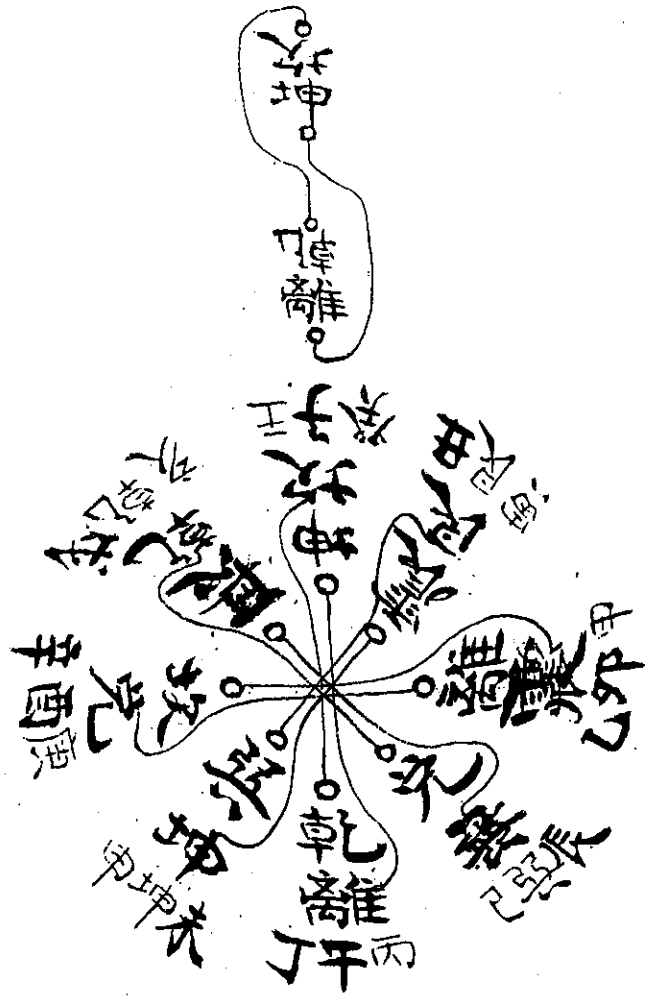 坎
坤
乾
離
壬子癸
坎
坤
丑艮寅
艮
震
甲卯乙
震
離
辰巽巳
巽
兌
丙午丁
離
乾
未坤申
坤
巽
庚酉辛
兌
坎
戌乾亥
乾
艮